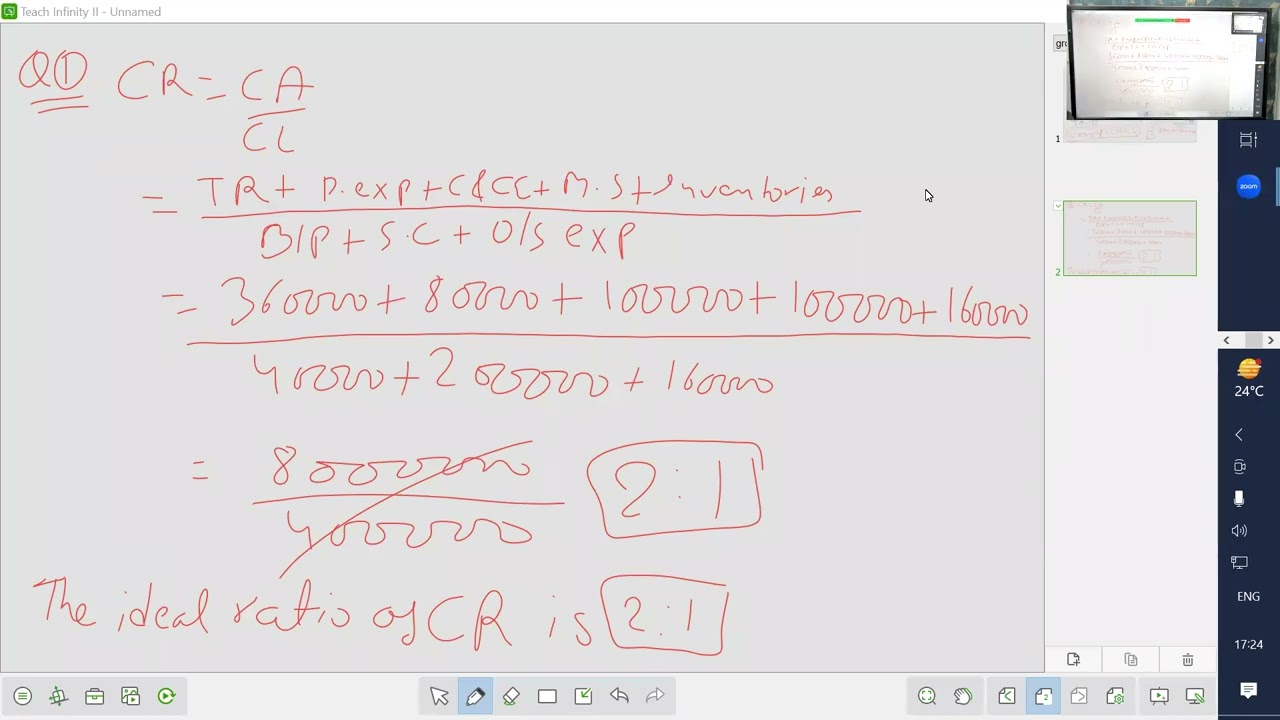 Teach Infinity II - Unnamed
Q① CR = CA
CL
= TR + P.exp + C&CE + M.S + Inventories
B/P + SC + O/S exp
= 360000 + 80000 + 100000 + 100000 + 160000
40000 + 200000 + 160000
= 800000
400000
2 : 1
The ideal ratio of CR is 2 : 1
1
2
zoom
24°C
ENG
17:24